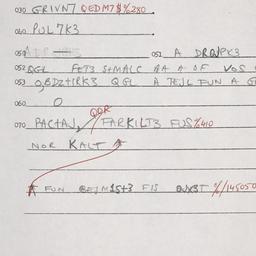 030 GRIVN7 QEDM7$%280
040 PUL7K3
052 A DRQNPK3
052 QGL FET3 S+MALC AA A OF VOS
053 QGL A TEJL FUN A
060 O
070 PACTAJ, QQR FARKILT3 FUS%410
NOR KALT A
A FUN QEJM1S+3 FIS QUXBT %/145050